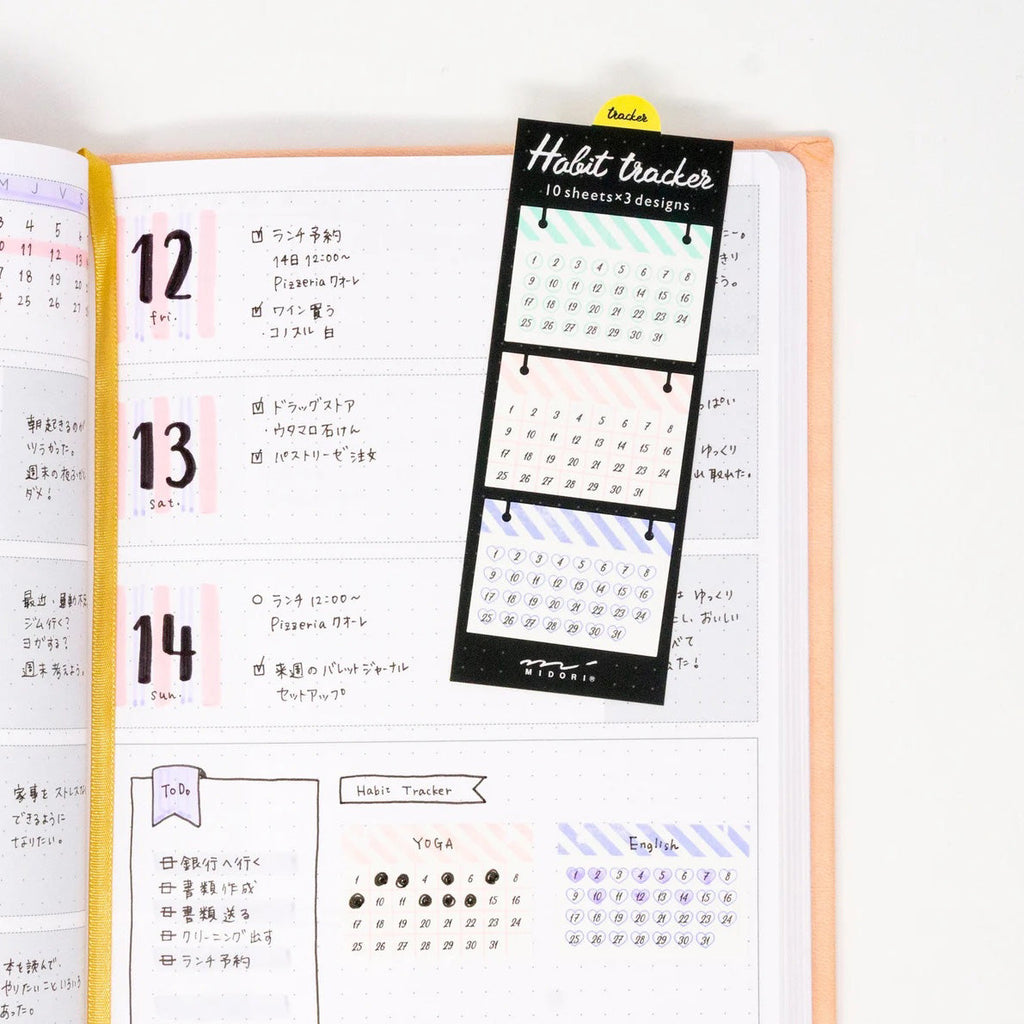 M J V S
3 4 5 6
10 11 12 13
17 18 19 20
24 25 26 27
朝起きるのが
ツラかった。
週末の夜ふかし
ダメ!
ジム行く?
ヨガする?
週末考えよう。
家事をストレス
できるように
なりたい。
本を読んで、
やりたいこといろいろ
あった。
12
fri.
ランチ予約
14日 12:00~
Pizzeria クオーレ
ワイン買う
・コノスル 白
13
sat.
ドラッグストア
・ウタマロ石けん
パストリーゼ注文
14
sun.
ランチ 12:00~
Pizzeria クオーレ
来週のバレットジャーナル
セットアップ
tracker
Habit tracker
10 sheets×3 designs
1 2 3 4 5 6 7 8
9 10 11 12 13 14 15 16
17 18 19 20 21 22 23 24
25 26 27 28 29 30 31
1 2 3 4 5 6 7 8
9 10 11 12 13 14 15 16
17 18 19 20 21 22 23 24
25 26 27 28 29 30 31
1 2 3 4 5 6 7 8
9 10 11 12 13 14 15 16
17 18 19 20 21 22 23 24
25 26 27 28 29 30 31
MIDORI®
っぱい
ゆっくり
れ取れた。
ゆっくり
とし、おいしい
べて
た!
ToDo
銀行へ行く
書類作成
書類送る
クリーニング出す
ランチ予約
Habit Tracker
YOGA
1 4 6 8
10 11 15 16
17 18 19 20 21 22 23 24
25 26 27 28 29 30 31
English
1 2 3 4 5 6 7 8
9 10 11 12 13 14 15 16
17 18 19 20 21 22 23 24
25 26 27 28 29 30 31